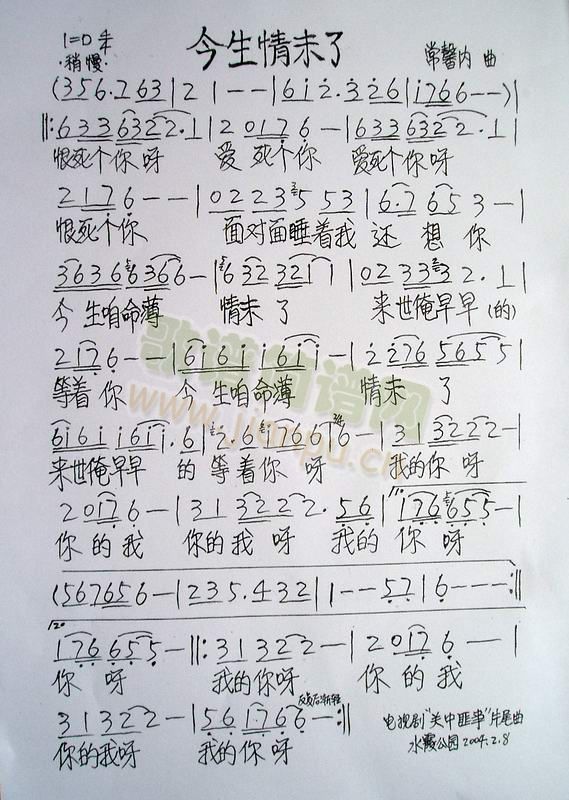 今生情未了
1=D 4/4
·稍慢·
常馨内 曲
(356.763|21--|612.326|1766--)|
‖:6336322.1|20176-|6336322.1|
恨死个你呀 爱死个你 爱死个你呀
2176--|0223553|6.7653-|
恨死个你 面对面睡着我还想你
36366366-|6322321|0233332.1|
今生咱命薄 情未了 来世俺早早(的)
2176--|6161161-|22765655|
等着你 今生咱命薄 情未了
6161161.6|2.617666-|313222-|
来世俺早早的等着你呀 我的你呀
20176-|31322.56|176655-|
你的我 你的我呀 我的你呀
(567656-|235.432|1--57|6---:‖
176655-‖:31322-|20176--|
你呀 我的你呀 你的我
31322-|561766-:‖
你的我呀 我的你呀
反复后渐轻
电视剧"关中匪事"片尾曲
水霞公园2004.2.8
歌谱简谱网
www.jianpu.cn